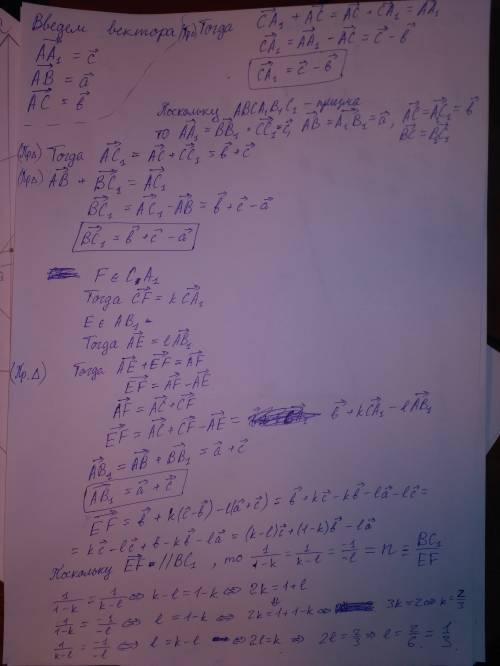 Введем вектора (Пр∆) Тогда CA₁ + AC = AC + CA₁ = AA₁
AA₁ = c
CA₁ = AA₁ - AC = c - b
AB = a
CA₁ = c - b
AC = b
Поскольку ABCA₁B₁C₁ - призма
то AA₁ = BB₁ = CC₁ = c, AB = A₁B₁ = a, AC = AC₁ = b
BC = BC₁
(Пр∆) Тогда AC₁ = AC + CC₁ = b + c
(Пр∆) AB + BC₁ = AC₁
BC₁ = AC₁ - AB = b + c - a
BC₁ = b + c - a
F ∈ C A₁
Тогда CF = k CA₁
E ∈ AB₁
Тогда AE = l AB₁
(Пр. ∆) Тогда AE + EF = AF
EF = AF - AE
AF = AC + CF
EF = AC + CF - AE = b + kCA₁ - lAB₁
AB₁ = AB + BB₁ = a + c
AB₁ = a + c
EF = b + k(c - b) - l(a + c) = b + kc - kb - la - lc =
= kc - lc + b - kb - la = (k-l)c + (1-k)b - la
Поскольку EF // BC₁, то 1/(1-k) = 1/(k-l) = -1/-l = n = BC₁/EF
1/(1-k) = 1/(k-l) ⇔ k-l = 1-k ⇔ 2k = 1+l
1/(1-k) = -1/-l ⇔ l = 1-k ⇔ 2k = 1+1-k ⇔ 3k = 2 ⇔ k = 2/3
1/(k-l) = -1/-l ⇔ l = k-l ⇔ 2l = k ⇔ 2l = 2/3 ⇔ l = 2/6 = 1/3